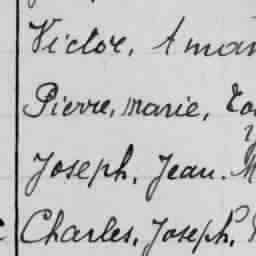 Victor, Aman
Pierre, marie,
Joseph, Jean. M
Charles, Joseph,